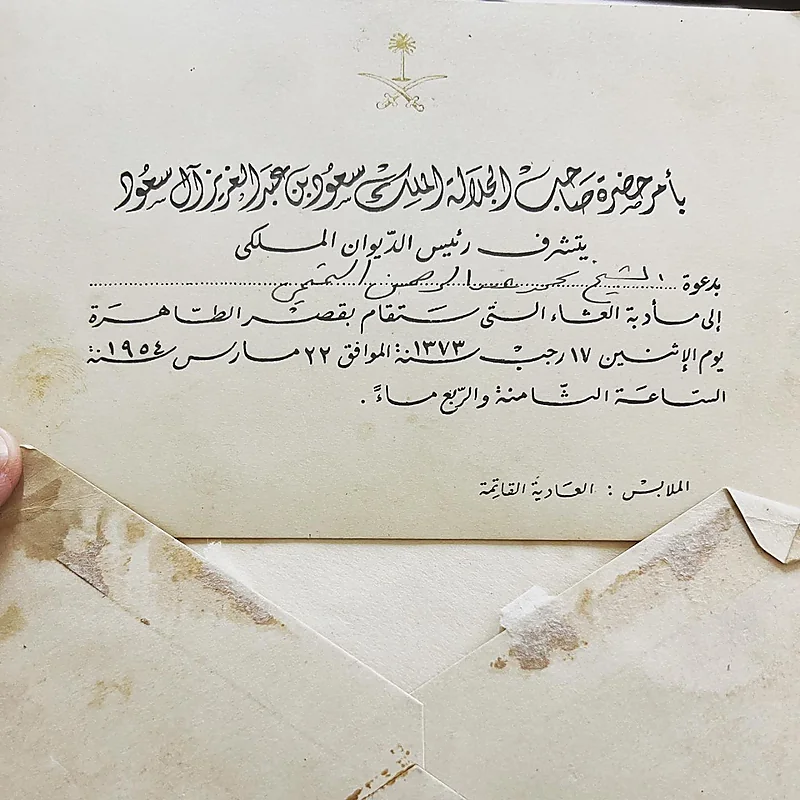 بأمر حضرة صاحب الجلالة الملك سعود بن عبد العزيز آل سعود
يتشرف رئيس الديوان الملكى
بدعوة الشيخ عبد الرحمن
إلى مأدبة العشاء التى ستقام بقصر الطاهرة
يوم الإثنين ١٧ رجب سنة ١٣٧٣ الموافق ٢٢ مارس سنة ١٩٥٤
الساعة الثامنة والربع مساءً .
الملابس : العادية القاتمة